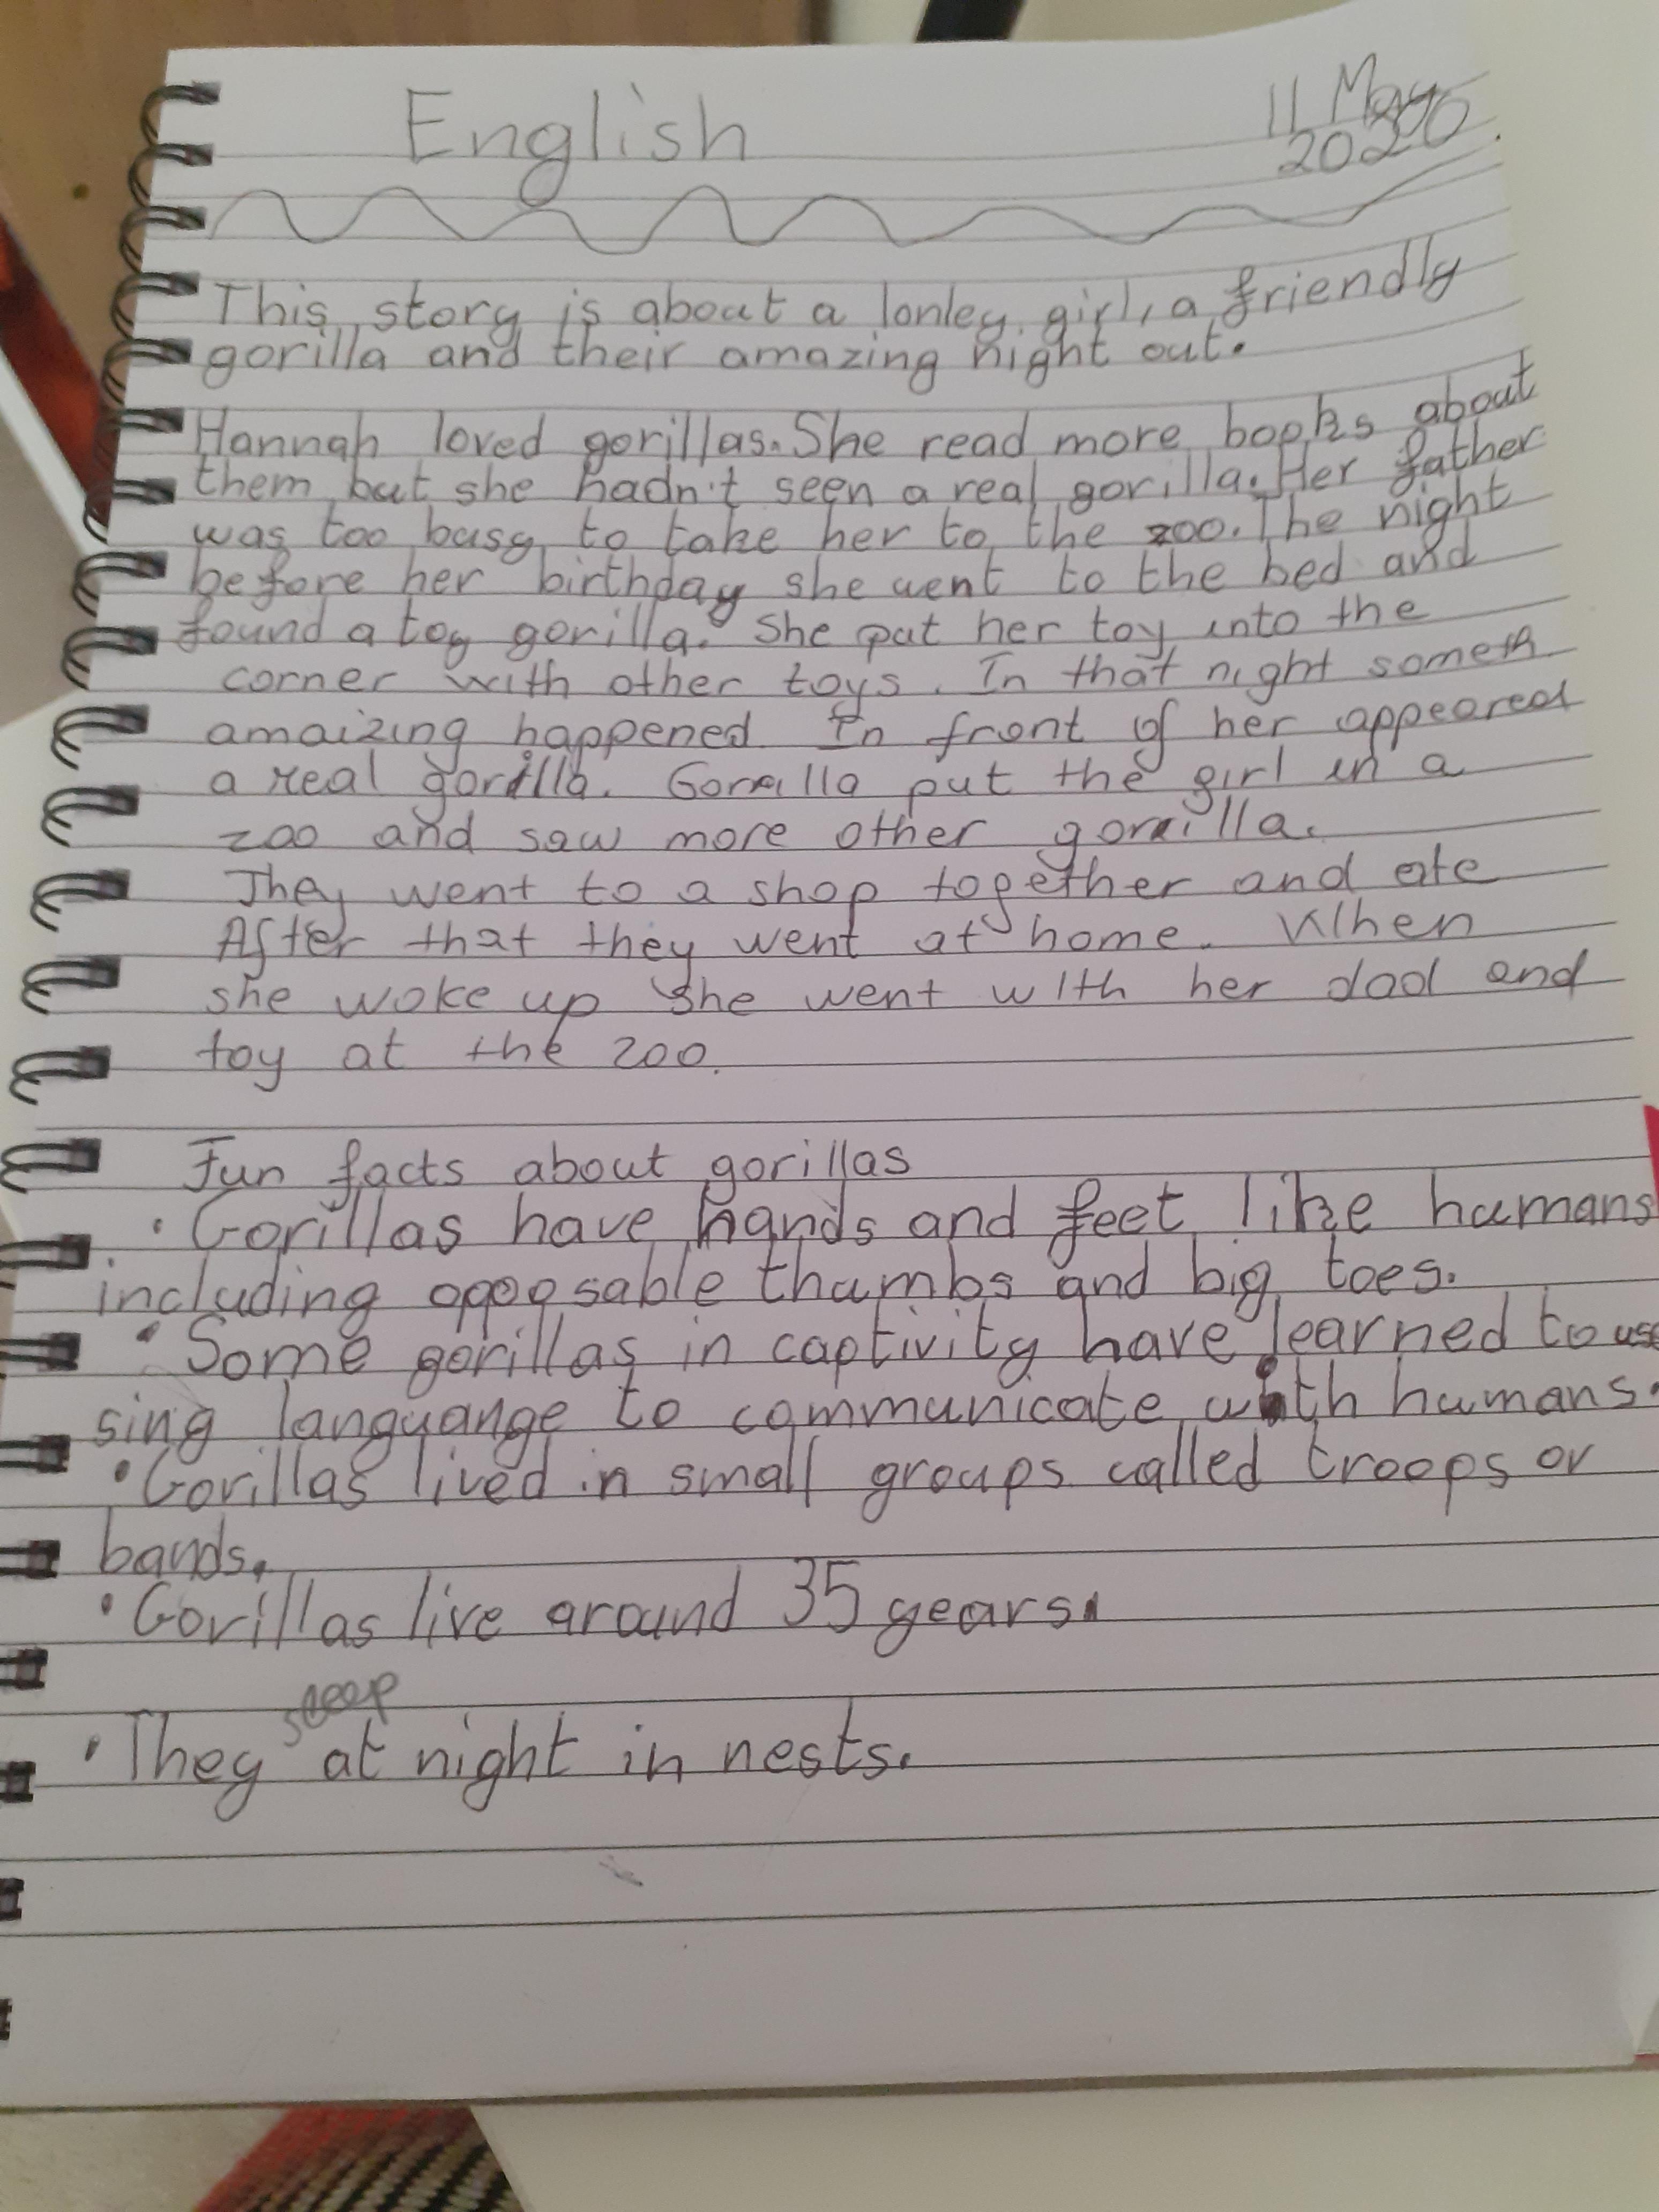 English
11 May
2020
This story is about a lonley girl, a friendly
gorilla and their amazing night out.
Hannah loved gorillas. She read more books about
them but she hadn't seen a real gorilla. Her father
was too busy to take her to the zoo. The night
before her birthday she went to the bed and
found a toy gorilla. She put her toy into the
corner with other toys. In that night someth
amaizing happened. In front of her appeared
a real gorilla. Gorilla put the girl in a
zoo and saw more other gorilla.
They went to a shop together and ate
After that they went at home. When
she woke up she went with her dad and
toy at the zoo.
Fun facts about gorillas
• Gorillas have hands and feet like humans
including opposable thumbs and big toes.
• Some gorillas in captivity have learned to use
sing languange to communicate with humans.
• Gorillas lived in small groups called troops or
bands.
• Gorillas live around 35 years.
• They sleep at night in nests.